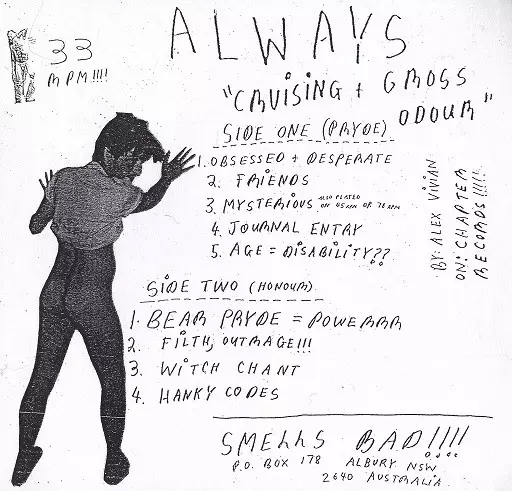 ALWAYS
33
RPM!!!!
"CRUISING + GROSS
ODOUR"
SIDE ONE (PRYDE)
1. OBSESSED + DESPERATE
2. FRIENDS
3. MYSTERIOUS ALSO PLAYED
ON 45 RPM OR 78 RPM
4. JOURNAL ENTRY
5. AGE = DISABILITY??
BY: ALEX VIVIAN
ON: CHAPTER
RECORDS!!!!!
SIDE TWO (HONOUR)
1. BEAR PRYDE = POWERRR
2. FILTH, OUTRAGE!!!
3. WITCH CHANT
4. HANKY CODES
SMELLS BAD!!!!
P.O. BOX 178 ALBURY NSW
2640 AUSTRALIA